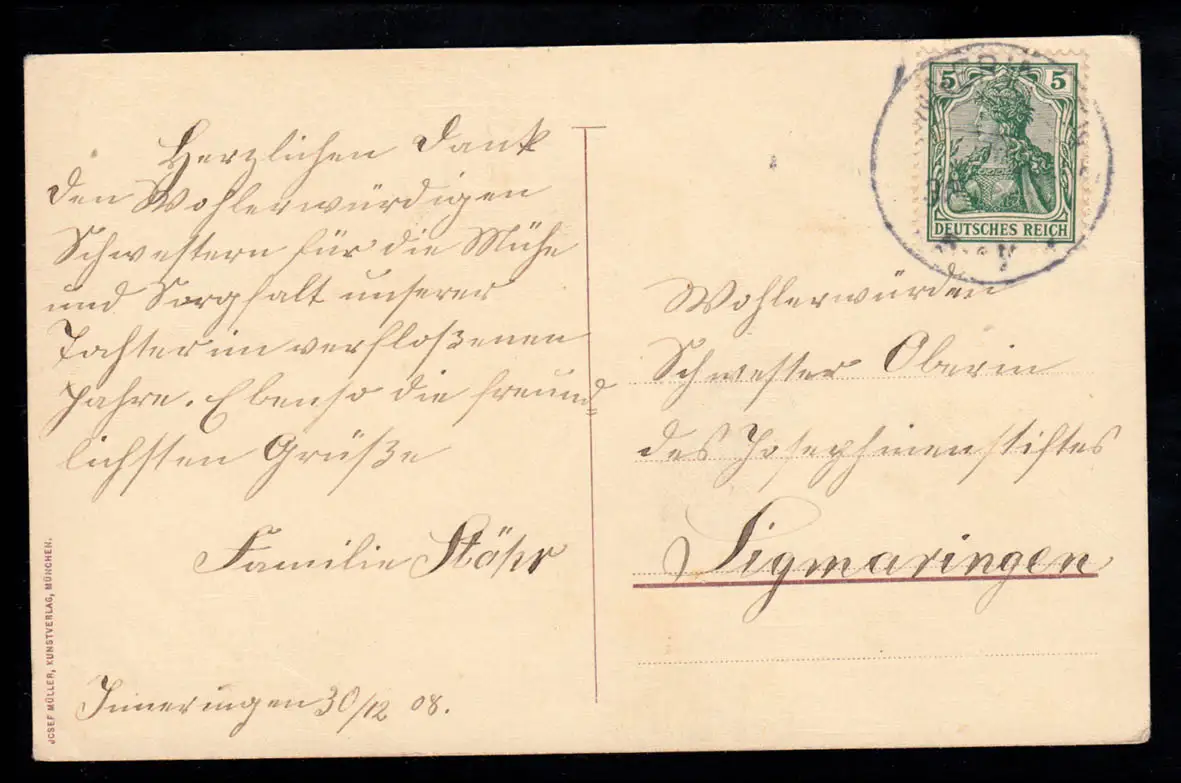 Herzlichen Dank
den Wohlerwürdigen
Schwestern für die Mühe
und Sorgfalt unserer
Tochter im verfloßenen
Jahre. Ebenso die freund=
lichsten Grüße
Familie Stöhr
Inneringen 30/12 08.
JOSEF MÜLLER, KUNSTVERLAG, MÜNCHEN.
5 5
DEUTSCHES REICH
Wohlerwürden
Schwester Oberin
des Josephinenstiftes
Sigmaringen